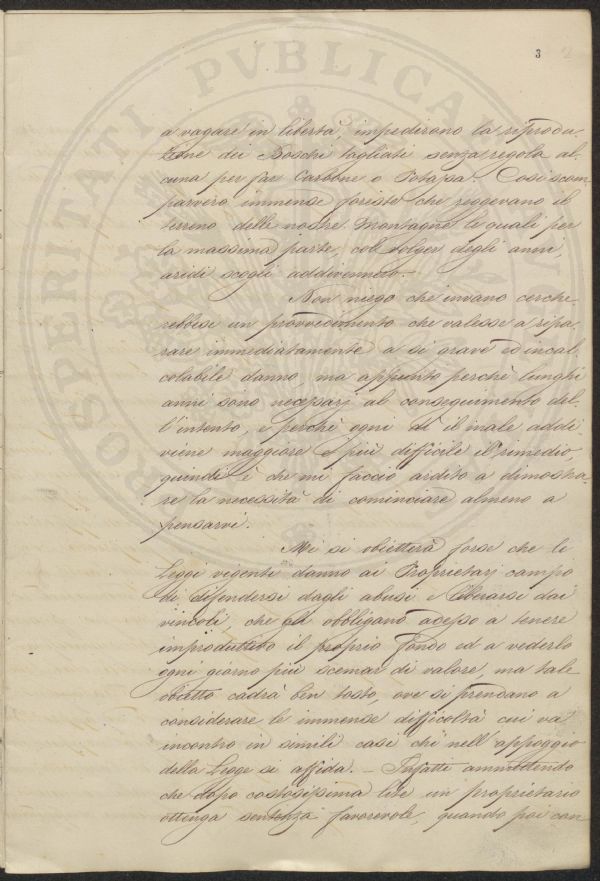 3
a vagare in libertà, impedirono la riprodu-
zione dei Boschi tagliati senza regola al-
cuna per far Carbone o Potassa. Così scom-
parvero immense foreste che reggevano il
terreno delle nostre Montagne le quali per
la massima parte, col volger degli anni,
aridi scogli addivennero.
Non niego che invano cerche-
rebbesi un provvedimento che valesse a ripa-
rare immediatamente a sì grave ed incal-
colabile danno, ma appunto perchè lunghi
anni sono necessarj al conseguimento del-
l'intento, e perchè ogni dì il male addi-
viene maggiore e più difficile il rimedio,
quindi è che mi faccio ardito a dimostra-
re la necessità di cominciare almeno a
pensarvi.
Mi si obietterà forse che le
Leggi vigenti danno ai Proprietarj campo
di difendersi dagli abusi e liberarsi dai
vincoli, che gli obbligano adesso a tenere
improduttivo il proprio fondo ed a vederlo
ogni giorno più scemar di valore, ma tale
obietto cadrà ben tosto, ove si prendano a
considerare le immense difficoltà cui va
incontro in simili casi chi nell'appoggio
della Legge si affida. — Infatti ammettendo
che dopo costosissima lite un proprietario
ottenga sentenza favorevole, quando poi con-
PROSPERITATI PVBLICAE